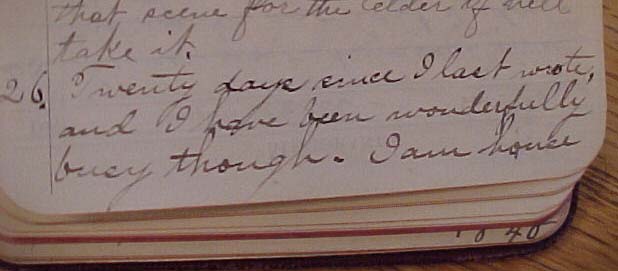 that scene for the elder if he'll
take it.
26. Twenty days since I last wrote,
and I have been wonderfully
busy though. I am house
40